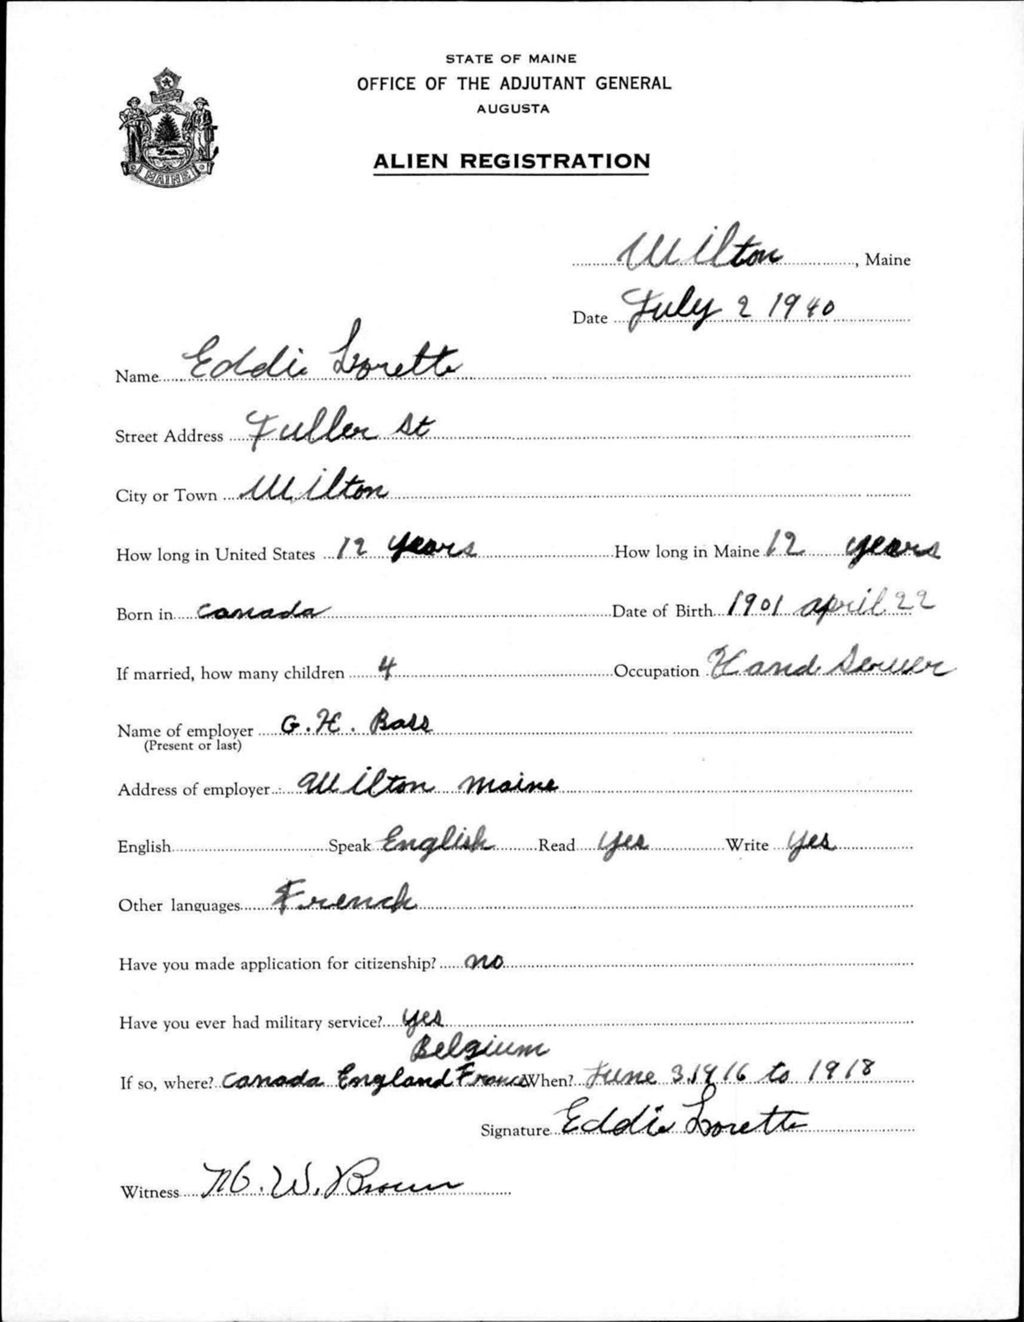 STATE OF MAINE
OFFICE OF THE ADJUTANT GENERAL
AUGUSTA
ALIEN REGISTRATION
MAINE
Wilton, Maine
Date July 2 1940
Name Eddie Lorette
Street Address Fuller St
City or Town Wilton
How long in United States 12 years How long in Maine 12 years
Born in Canada Date of Birth 1901 april 22
If married, how many children 4 Occupation Hand Sewer
Name of employer G. H. Bass
(Present or last)
Address of employer Wilton Maine
English Speak English Read Yes Write Yes
Other languages French
Have you made application for citizenship? no
Have you ever had military service? yes
Belgium
If so, where? Canada England France When? June 3, 1916 to 1918
Signature Eddie Lorette
Witness W. Brown